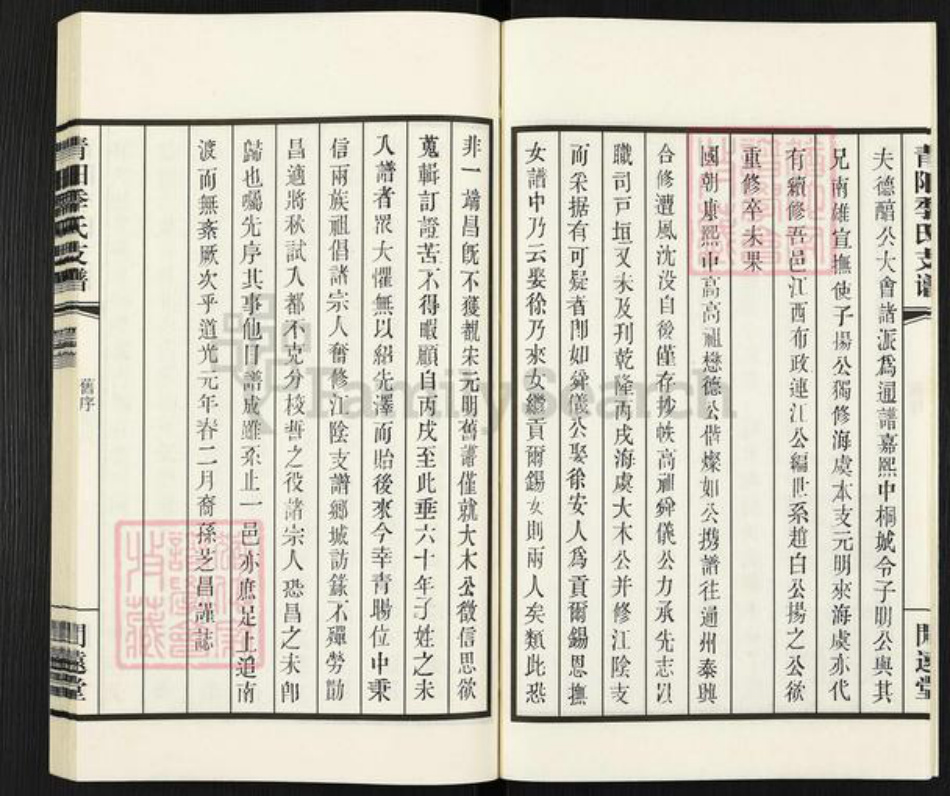 夫德醕公大會諸派爲通譜嘉熙中桐城令子明公與其
兄南雄宣撫使子揚公獨修海虞本支元明來海虞亦代
有續修吾邑江西布政連江公編世系趙白公揚之公欲
重修卒未果
國朝康熙中高高祖懋德公偕燦如公携譜往通州泰興
合修遭風沈没自後僅存抄帙高祖舜儀公力承先志以
職司戸垣又未及刊乾隆丙戌海虞大木公并修江陰支
而采据有可疑者即如舜儀公娶徐安人爲貢爾錫恩撫
女譜中乃云娶徐乃來女繼貢爾錫女則兩人矣類此恐
非一端昌旣不獲覩宋元明舊譜僅就大木公徵信思欲
蒐輯訂證苦不得暇顧自丙戌至此垂六十年子姓之未
入譜者眾大懼無以紹先澤而貽後來今幸青賜位中秉
信兩族祖倡諸宗人奮修江陰支譜鄉城訪錄不殫勞勩
昌適將秋試入都不克分校讐之役諸宗人恐昌之未即
歸也囑先序其事他日譜成雖系止一邑亦庶足上追南
渡而無紊厥次乎道光元年春二月裔孫芝昌謹誌
青陽季氏支譜
舊序
閒遠堂
FamilySearch